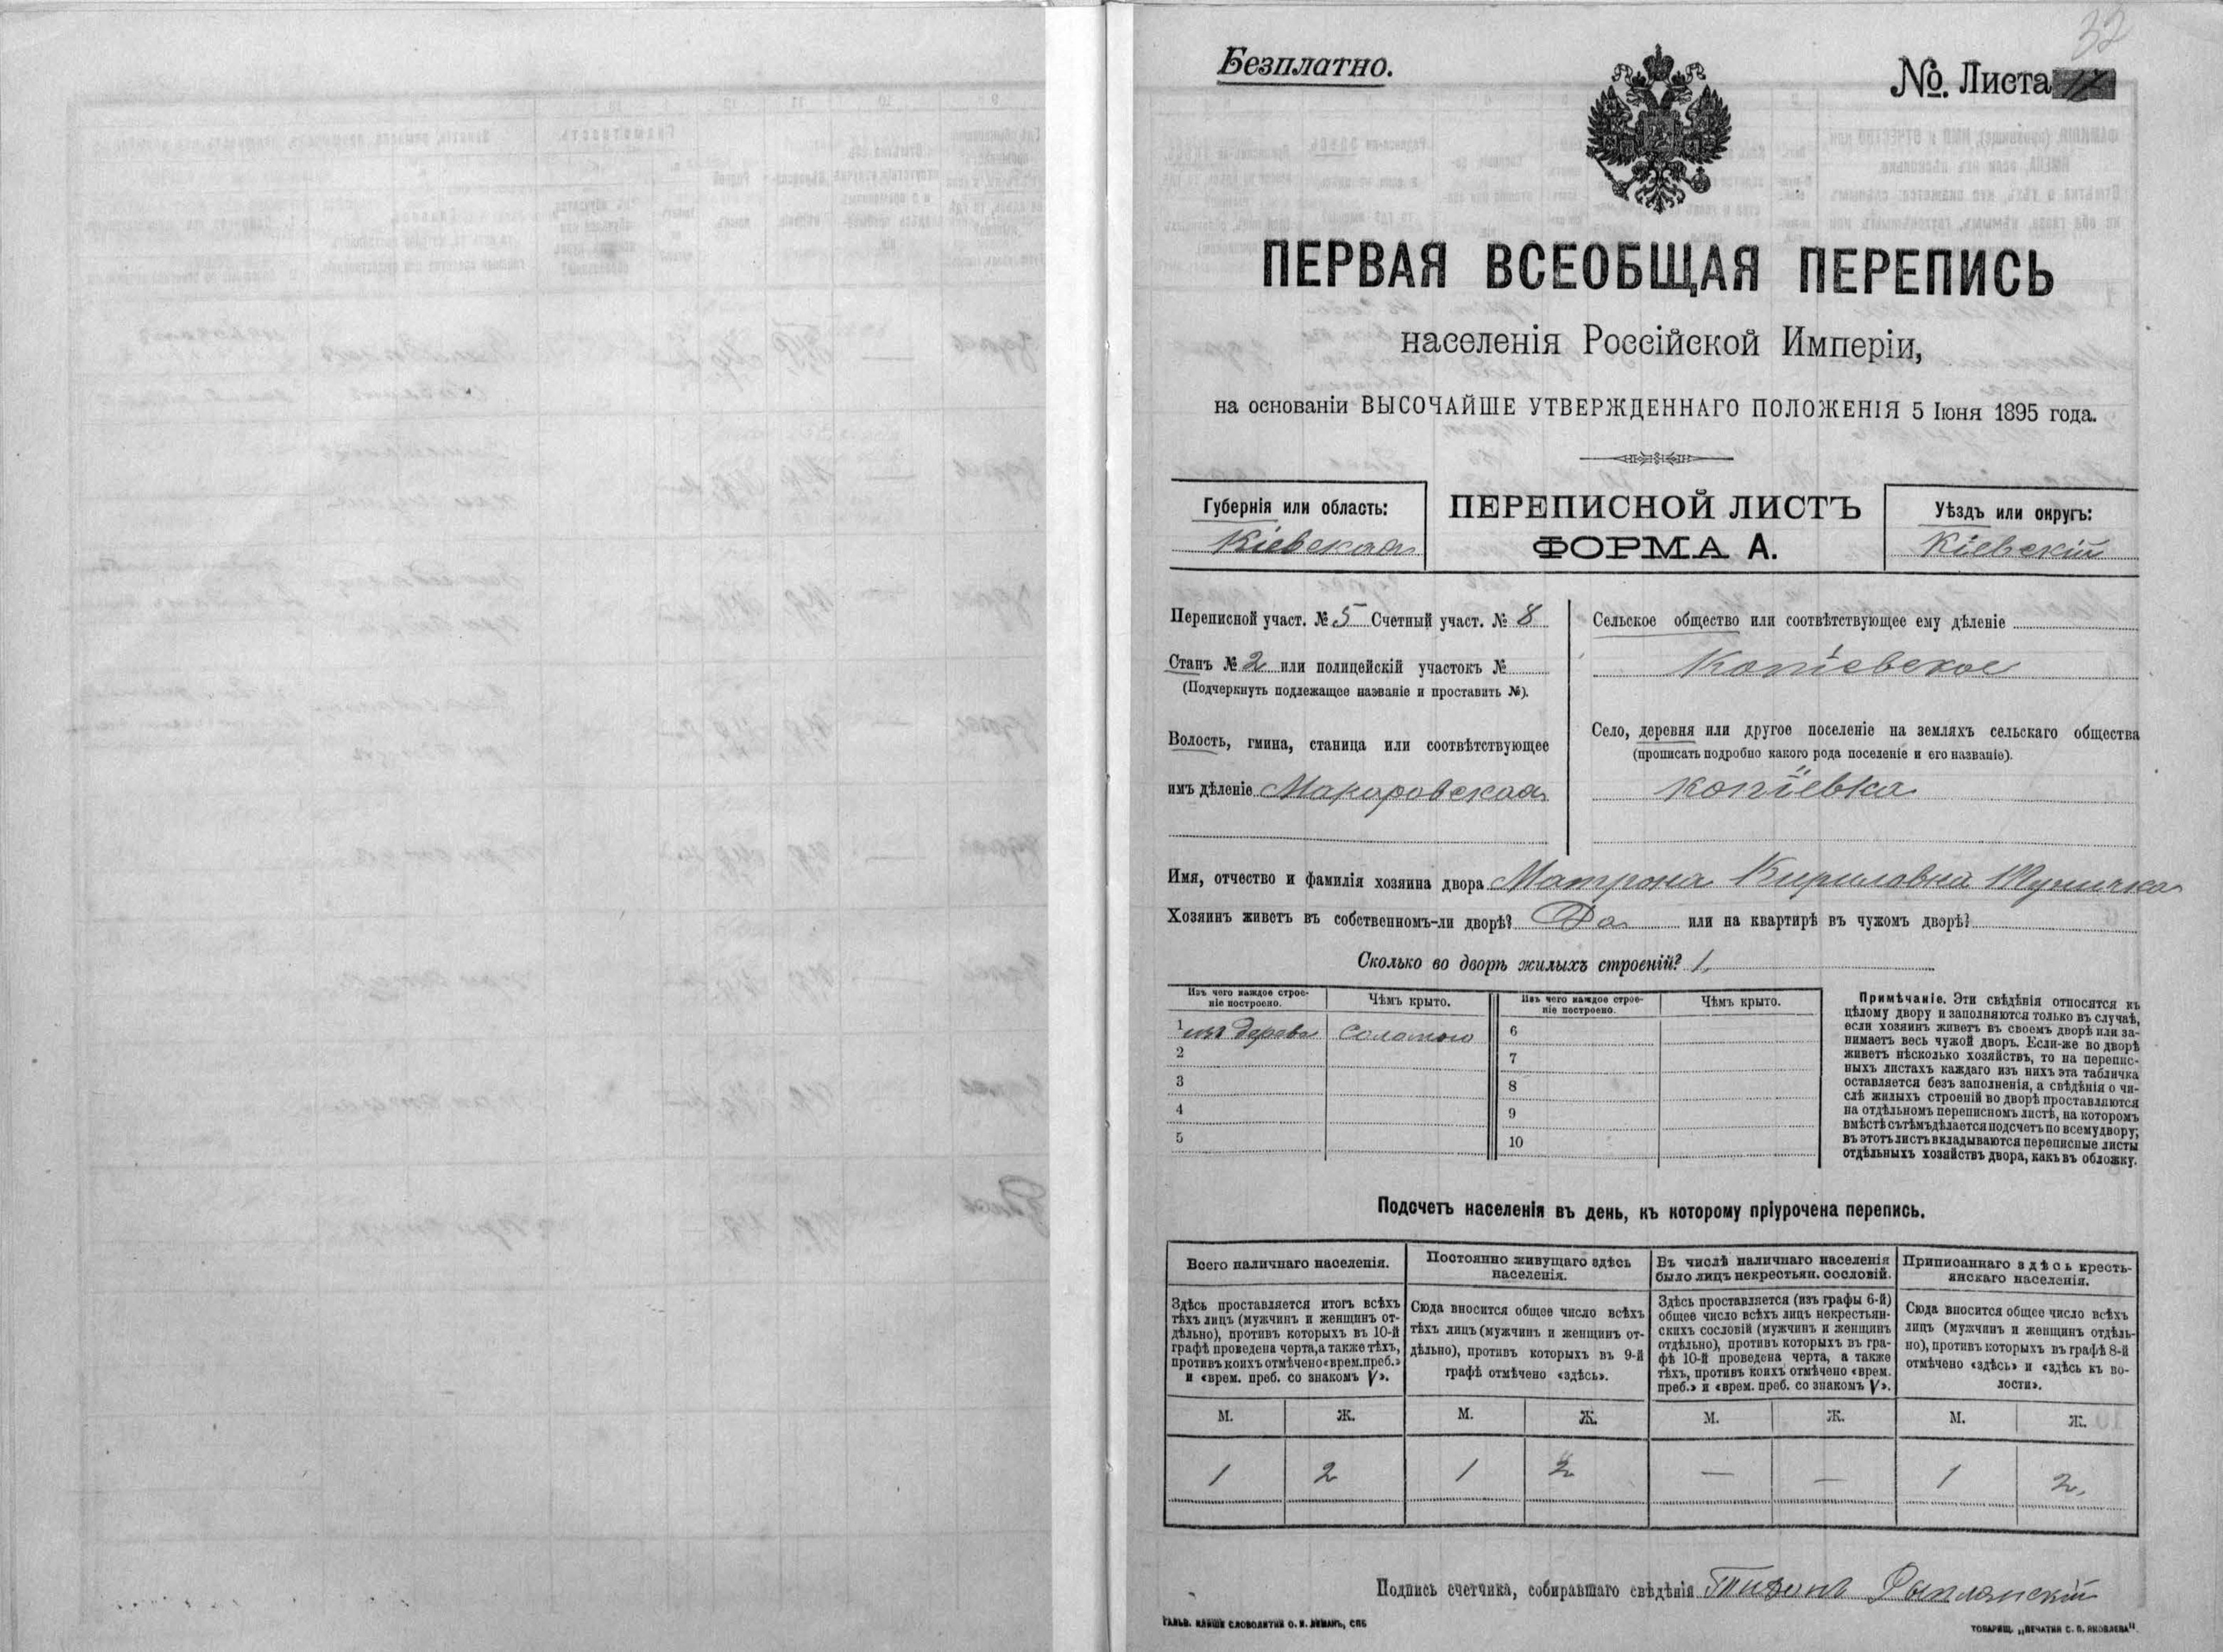 32
Безплатно.
№. Листа 17
ПЕРВАЯ ВСЕОБЩАЯ ПЕРЕПИСЬ
населенія Россійской Имперіи,
на основаніи ВЫСОЧАЙШЕ УТВЕРЖДЕННАГО ПОЛОЖЕНІЯ 5 Іюня 1895 года.
Губернія или область:
Кіевская
ПЕРЕПИСНОЙ ЛИСТЪ
ФОРМА А.
Уѣздъ или округъ:
Кіевскій
Переписной участ. № 5 Счетный участ. № 8
Станъ № 2 или полицейскій участокъ №
(Подчеркнуть подлежащее названіе и проставить №).
Волость, гмина, станица или соотвѣтствующее
имъ дѣленіе Макаровская
Сельское общество или соотвѣтствующее ему дѣленіе
Копіевское
Село, деревня или другое поселеніе на земляхъ сельскаго общества
(прописать подробно какого рода поселеніе и его названіе).
Копіевка
Имя, отчество и фамилія хозяина двора Матрона Кириловна
Хозяинъ живетъ въ собственномъ-ли дворѣ? Да или на квартирѣ въ чужомъ дворѣ?
Сколько во дворѣ жилыхъ строеній? 1
Изъ чего каждое строе-
ніе построено.
Чѣмъ крыто.
Изъ чего каждое строе-
ніе построено.
Чѣмъ крыто.
1 изъ дерева соломою
2
3
4
5
6
7
8
9
10
Примѣчаніе. Эти свѣдѣнія относятся къ
цѣлому двору и заполняются только въ случаѣ,
если хозяинъ живетъ въ своемъ дворѣ или за-
нимаетъ весь чужой дворъ. Если-же во дворѣ
живетъ нѣсколько хозяйствъ, то на перепис-
ныхъ листахъ каждаго изъ нихъ эта табличка
оставляется безъ заполненія, а свѣдѣнія о чи-
слѣ жилыхъ строеній во дворѣ проставляются
на отдѣльномъ переписномъ листѣ, на которомъ
вмѣстѣ съ тѣмъ дѣлается подсчетъ по всему двору;
въ этотъ листъ вкладываются переписные листы
отдѣльныхъ хозяйствъ двора, какъ въ обложку.
Подсчетъ населенія въ день, къ которому пріурочена перепись.
Всего наличнаго населенія.
Здѣсь проставляется итогъ всѣхъ
тѣхъ лицъ (мужчинъ и женщинъ от-
дѣльно), противъ которыхъ въ 10-й
графѣ проведена черта, а также тѣхъ,
противъ коихъ отмѣчено «врем. преб.»
и «врем. преб. со знакомъ V».
М. Ж.
1 2
Постоянно живущаго здѣсь
населенія.
Сюда вносится общее число всѣхъ
тѣхъ лицъ (мужчинъ и женщинъ от-
дѣльно), противъ которыхъ въ 9-й
графѣ отмѣчено «здѣсь».
М. Ж.
1 2
Въ числѣ наличнаго населенія
было лицъ некрестьян. сословій.
Здѣсь проставляется (изъ графы 6-й)
общее число всѣхъ лицъ некрестьян-
скихъ сословій (мужчинъ и женщинъ
отдѣльно), противъ которыхъ въ гра-
фѣ 10-й проведена черта, а также
тѣхъ, противъ коихъ отмѣчено «врем.
преб.» и «врем. преб. со знакомъ V».
М. Ж.
— —
Приписаннаго здѣсь кресть-
янскаго населенія.
Сюда вносится общее число всѣхъ
лицъ (мужчинъ и женщинъ отдѣль-
но), противъ которыхъ въ графѣ 8-й
отмѣчено «здѣсь» и «здѣсь къ во-
лости».
М. Ж.
1 2
Подпись счетчика, собиравшаго свѣдѣнія
ГАЛЬВ. КЛИШЕ СЛОВОЛИТНИ О. И. ЛЕМАНЪ, СПБ
ТОВАРИЩ. „ПЕЧАТНЯ С. П. ЯКОВЛЕВА".